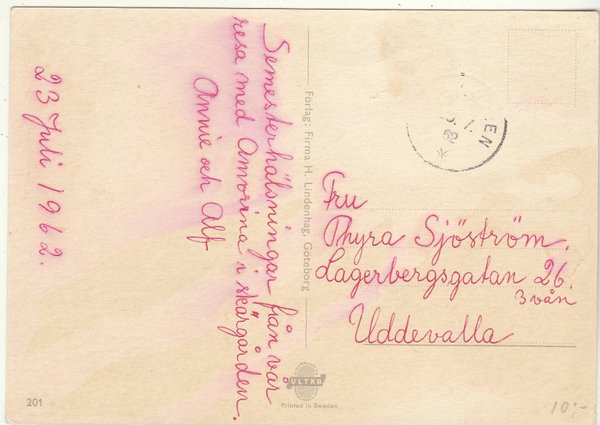 23 Juli 1962.
Semesterhälsningar från vår
resa med Amorina i skärgården.
Annie och Alf
Förlag: Firma H. Lindenhag, Göteborg
Fru
Thyra Sjöström.
Lagerbergsgatan 26.
3 vån
Uddevalla
EN
ULTRA
Printed in Sweden
201
10:-